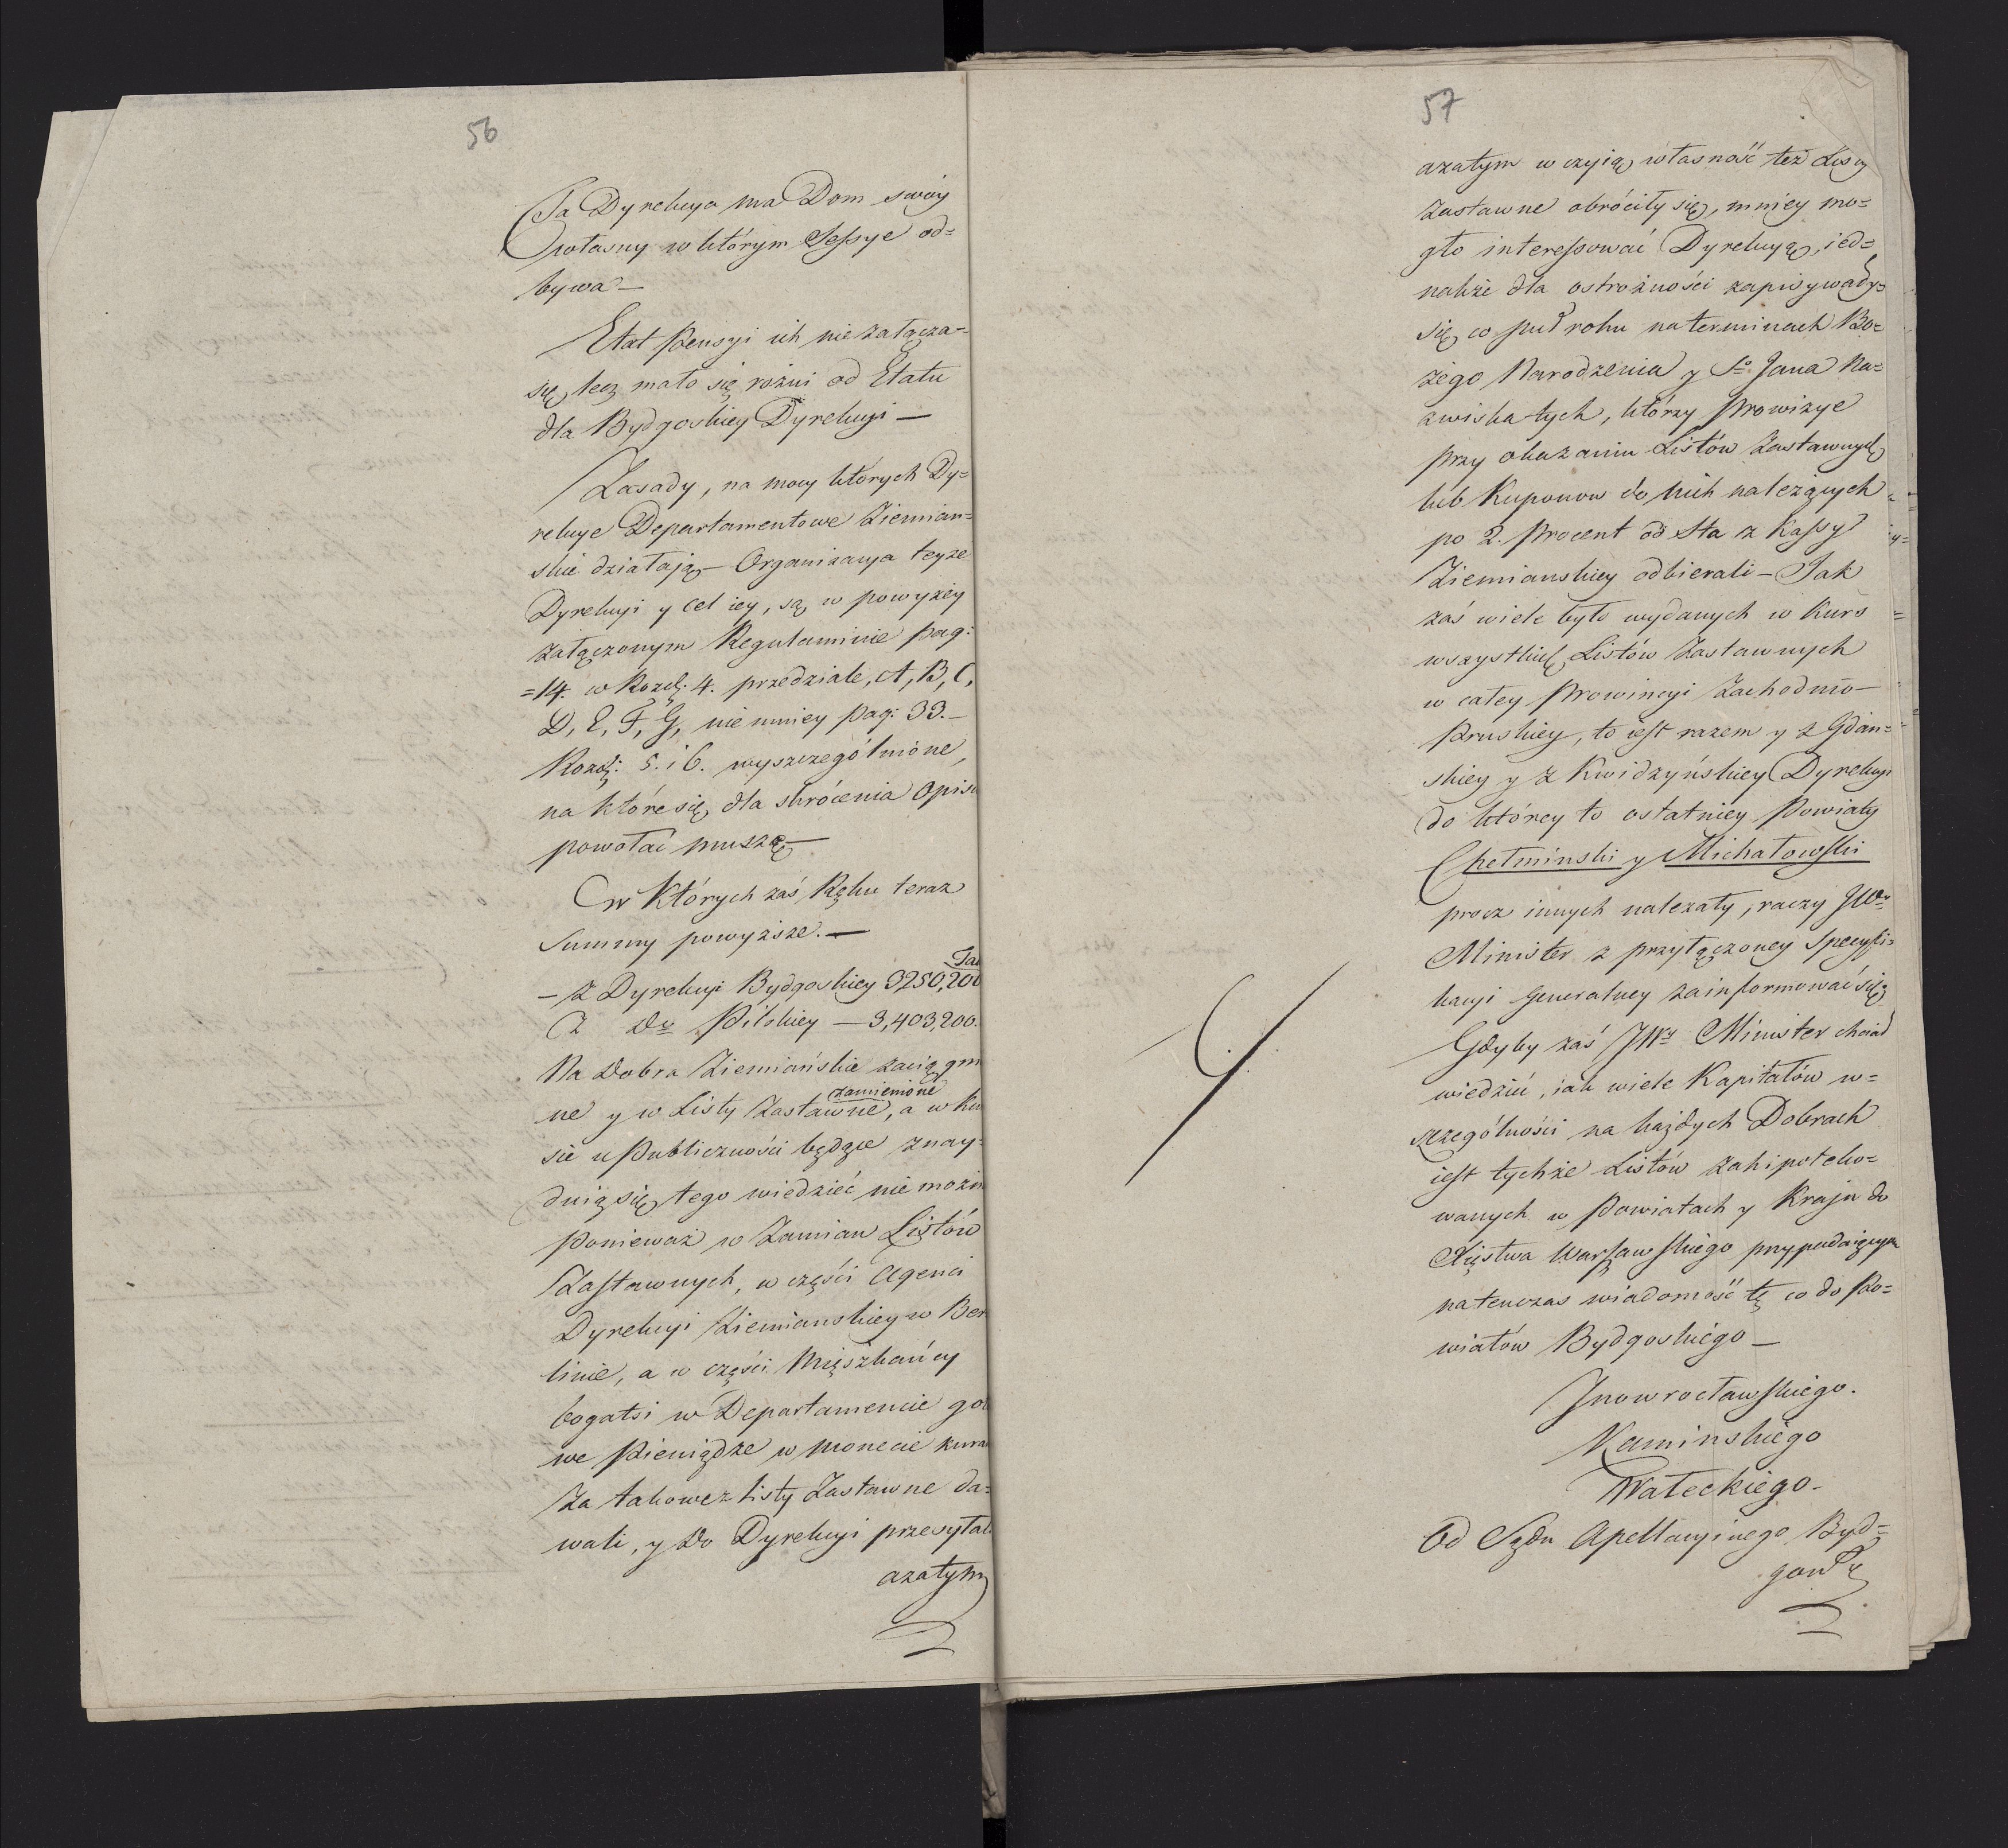 56
Ta Dyrekcya ma Dom swóy
własny w którym Sessye od=
bywa —
Etat Pensyi ich nie załącza-
się, lecz mało się różni od Etatu
dla Bydgoskiey Dyrekcyi —
Zasady, na mocy których Dy=
rekcye Departamentowe Ziemian=
skie działają — Organizacya teyże
Dyrekcyi y cel iey, są w powyżey
załączonym Regulaminie pag:
=14. w Rozdz. 4. przedziale, A, B, C,
D, E, F, G, nie mniey pag: 33. —
Rozdz: 5. i 6. wyszczególnione,
na które się dla skrócenia Opisu
powołać muszę —
w Których zaś Ręku teraz
Summy powyższe. —
Tal
— Z Dyrekcyi Bydgoskiey 3250,200
Z Do Pilskiey — 3,403,200.
Na Dobra Ziemiańskie zaciągnio
zamienione
ne y w Listy Zastawne, a w Kur
sie u Publiczności będące znay=
duią się, tego wiedzieć nie można
Ponieważ w Zamian Listów
Zastawnych, w części Agenci
Dyrekcyi Ziemianskiey w Ber
linie, a w części Mięszkańcy
bogatsi w Departamencie goto
we Pieniądze w monecie kuran
za takowez Listy Zastawne da=
wali, y do Dyrekcyi przesyłali
azatym
57
azatym w czyią własność też Listy
Zastawne obróciły się, mniey mo=
gło interessować Dyrekcyą, ied=
nakże dla ostrożności zapisywały=
się co puł roku na terminach Bo=
żego Narodzenia y So Jana Na=
zwiska tych, którzy Prowizye
przy okazaniu Listów Zastawnych
lub Kuponow do nich należących
po 2. Procent od Sta z Kassy
Ziemianskiey odbierali — Jak
zaś wiele było wydanych w Kurs
wszystkich Listów Zastawnych
w całey Prowincyi Zachodnio —
Pruskiey, to iest razem y z Gdan=
skiey y z Kwidzyńskiey Dyrekcyi
do którey to ostatniey Powiaty
Chełminski y Michałowski
procz innych należały, raczy JWy
Minister z przyłączoney Specyfi=
kacyi Generalney zainformować się
Gdyby zaś JWy Minister chciał
wiedzieć, iak wiele Kapitałów w=
szczególności na każdych Dobrach
iest tychże Listów zahipoteko=
wanych w Powiatach y Kraju do
Xięstwa Warszawskiego przypadaiącym
natenczas wiadomość tę co do Po=
wiatów Bydgoskiego —
Jnowrocławskiego.
Kaminskiego
Wałeckiego —
Od Sądu Apellacyinego Byd=